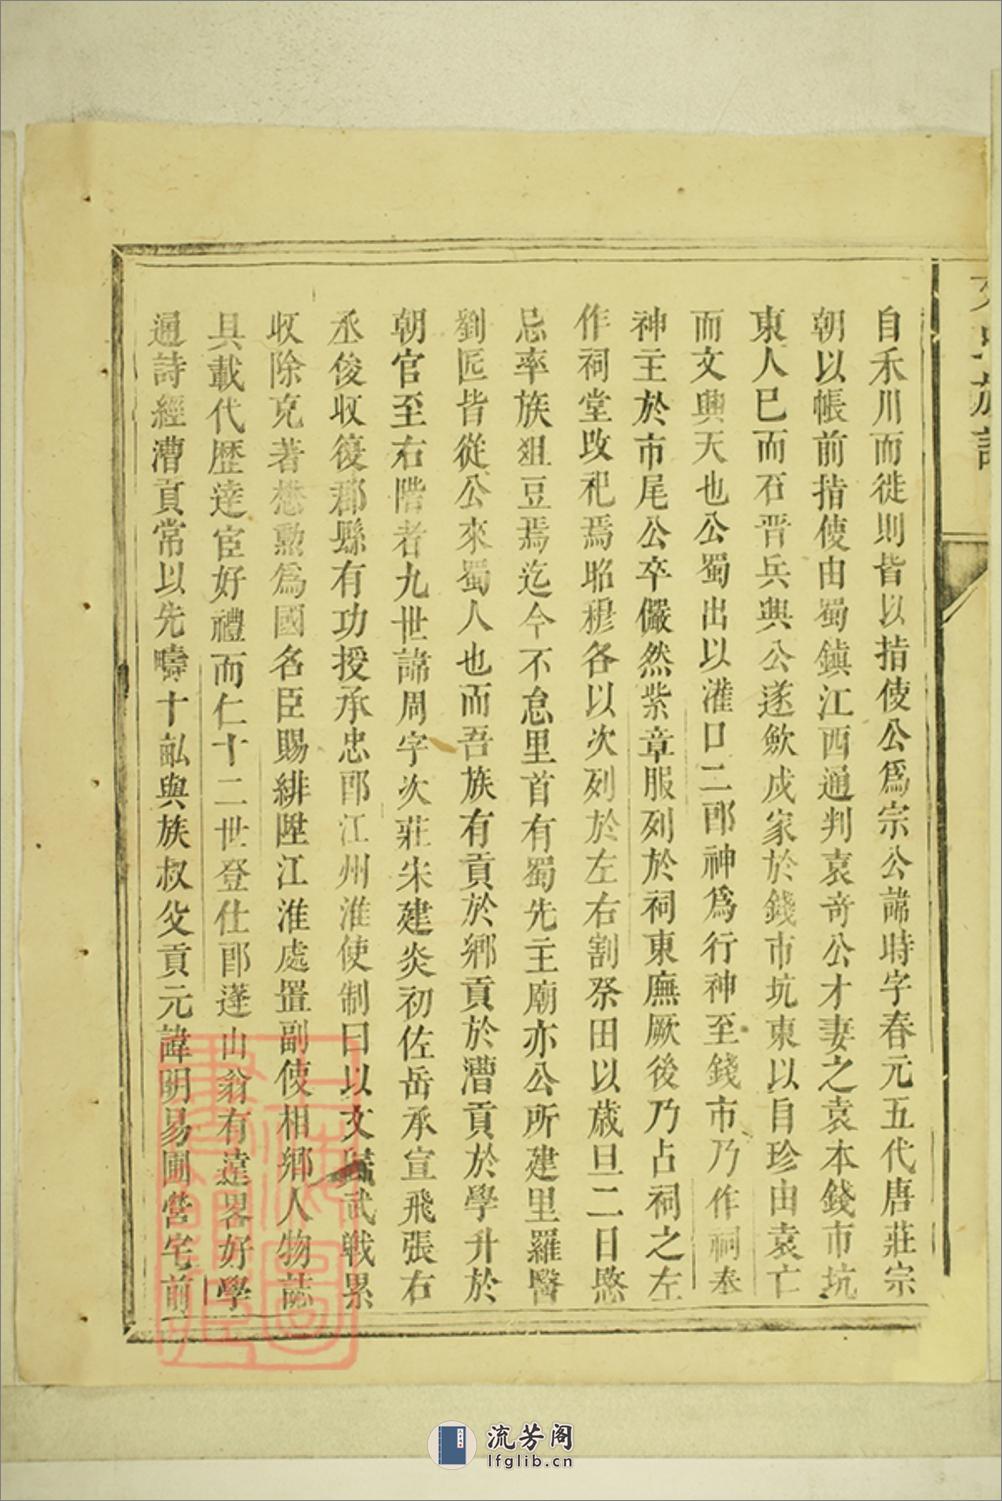 文氏族譜
自禾川而徙則皆以指使公爲宗公諱時字春元五代唐莊宗
朝以帳前指使由蜀鎮江西通判袁竒公才妻之袁本錢市坑
東人巳而石晋兵興公遂歛戍家於錢市坑東以自珍由袁亡
而文興天也公蜀出以灌口二郎神爲行神至錢市乃作祠奉
神主於市尾公卒儼然紫章服列於祠東廡厥後乃占祠之左
作祠堂攺祀焉昭穆各以次列於左右割祭田以歳旦二日愍
忌率族俎豆焉迄今不怠里首有蜀先主廟亦公所建里羅醫
劉匠皆從公來蜀人也而吾族有貢於鄉貢於漕貢於學升於
朝官至右階者九世諱周字次莊宋建炎初佐岳承宣飛張右
丞俊收復郡縣有功授承忠郎江州淮使制曰以文武戰累
收除克著懋勲爲國名臣賜緋陞江淮處置副使相鄉人物誌
具載代歷達宦好禮而仁十二世登仕郎蓬山翁有達畧好學
通詩經漕貢常以先疇十畝與族叔父貢元諱明易圃營宅前
流芳阁
lfglib.cn